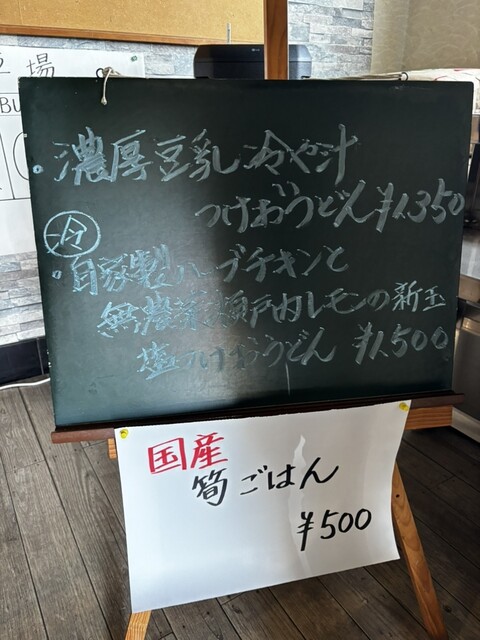 場
BU
・濃厚豆乳冷や汁
つけおうどん ¥1,350
冷
・自家製ハーブチキンと
無農薬瀬戸内レモンの新玉
塩つけおうどん ¥1,500
国産
筍ごはん
¥500